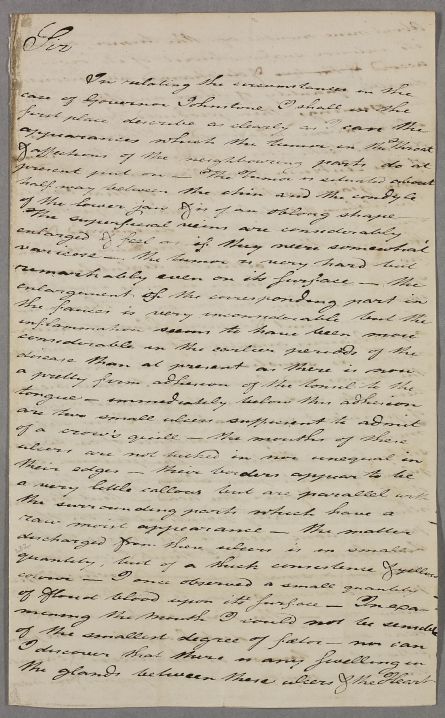 Sir
In relating the circumstances in the
case of Governor Johnstone I shall in the
first place describe as clearly as I can the
appearances which the tumor in the throat
& affections of the neighbouring parts do at
present put on — The Tumor is situated about
half way between the chin and the condyle
of the lower jaw & is of an oblong shape —
The superficial veins are considerably
enlarged & feel as if they were somewhat
varicose — the tumor is very hard but
remarkably even on its surface — the
enlargement of the corresponding part in
the fauces is very inconsiderable but the
inflammation seems to have been more
considerable in the earlier periods of the
disease than at present as there is now
a pretty firm adhesion of the tonsil to the
tongue — immediately below this adhesion
are two small ulcers sufficient to admit
of a crow's quill — the mouths of these
ulcers are not tucked in nor unequal in
their edges — their borders appear to be
a very little callous but are parallel with
the surrounding parts which have a
raw moist appearance — the matter
discharged from these ulcers is in smaller
quantity, but of a thick consistence & yellow
colour — I once observed a small quantity
of florid blood upon its surface — In exa-
mining the mouth I could not be sensible
of the smallest degree of foetor — nor can
I discover that there is any swelling in
the glands between these ulcers & the Heart